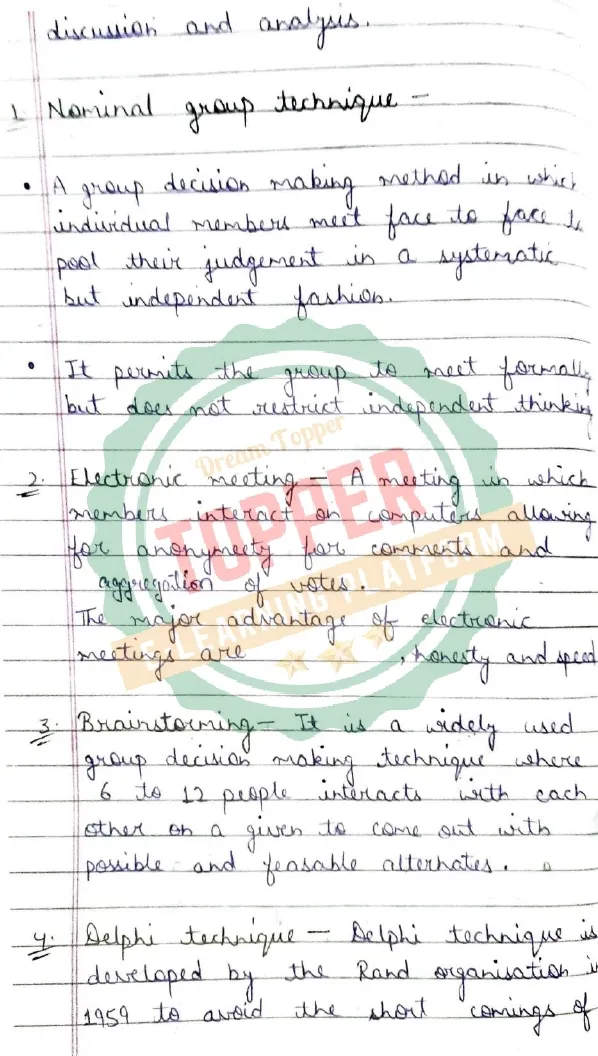 discussion and analysis.
1 Nominal group technique –
• A group decision making method in which
individual members meet face to face
pool their judgement in a systematic
but independent fashion.
• It permits the group to meet formally
but does not restrict independent thinking
Dream Topper
2. Electronic meeting – A meeting in which
TOPPER
members interact on computers allowing
for anonymeety for comments and
aggregation of votes.
E-LEARNING PLATFORM
The major advantage of electronic
meetings are , honesty and speed
3. Brainstorming – It is a widely used
group decision making technique where
6 to 12 people interacts with each
other on a given to come out with
possible and feasable alternates.
4. Delphi technique – Delphi technique is
developed by the Rand organisation
1959 to avoid the short comings of